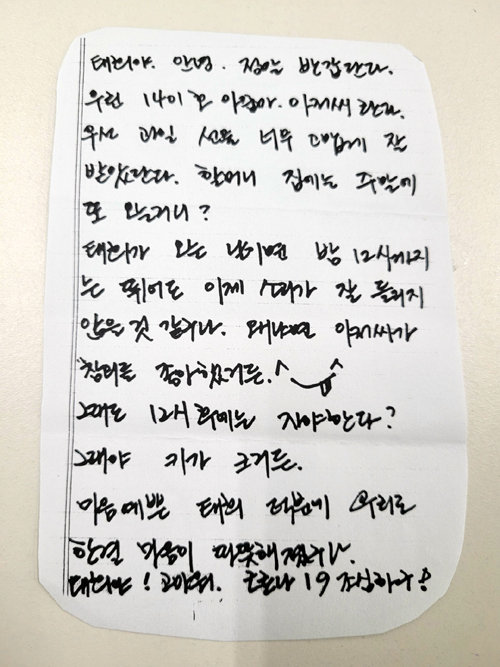 태희야. 안녕. 정말 반갑단다.
우린 1401호 아줌마. 아저씨란다.
우선 과일 선물 너무 고맙게 잘
받았단다. 할머니 집에는 주말에
또 오는거니?
태희가 오는 날이면 밤 12시까지
는 뛰어도 이제 소리가 잘 들리지
않을것 같구나. 왜냐면 아저씨가
창틀를 좋아했거든.^‿^
그래도 12시 후에는 자야한다?
그래야 키가 크거든.
마음예쁜 태희 덕분에 우리도
한결 마음이 따뜻해졌구나.
태희야! 고마워. 코로나 19 조심하구!